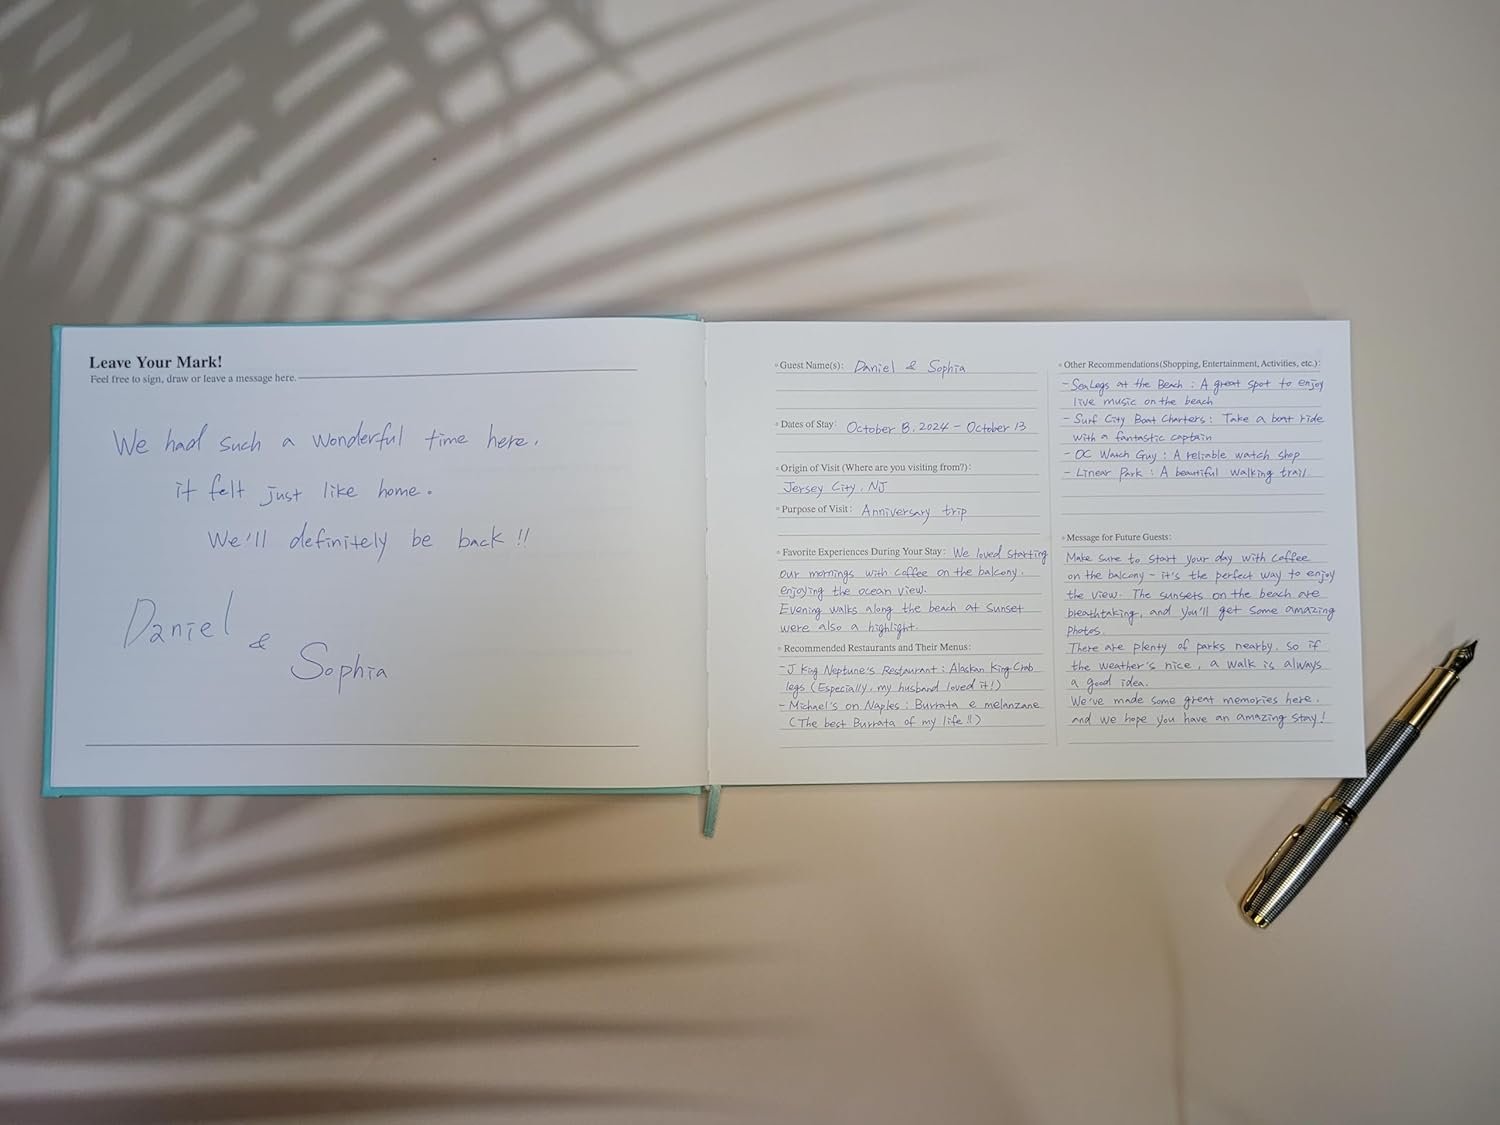 Leave Your Mark!
Feel free to sign, draw or leave a message here.
We had such a wonderful time here.
it felt just like home.
We'll definitely be back !!
Daniel
&
Sophia
Guest Name(s): Daniel & Sophia
Dates of Stay: October 8, 2024 - October 13
Origin of Visit (Where are you visiting from?):
Jersey City, NJ
Purpose of Visit: Anniversary trip
Favorite Experiences During Your Stay: We loved starting
our mornings with coffee on the balcony,
enjoying the ocean view.
Evening walks along the beach at sunset
were also a highlight.
Recommended Restaurants and Their Menus:
- J King Neptune's Restaurant : Alaskan King Crab
legs (Especially, my husband loved it!)
- Michael's on Naples : Burrata e melanzane
(The best Burrata of my life !!)
Other Recommendations(Shopping, Entertainment, Activities, etc.):
- SeaLegs at the Beach : A great spot to enjoy
live music on the beach
- Surf City Boat Charters : Take a boat ride
with a fantastic captain
- OC Watch Guy : A reliable watch shop
- Linear Park : A beautiful walking trail
Message for Future Guests:
Make sure to start your day with coffee
on the balcony - it's the perfect way to enjoy
the view. The sunsets on the beach are
breathtaking, and you'll get some amazing
photos.
There are plenty of parks nearby, so if
the weather's nice, a walk is always
a good idea.
We've made some great memories here,
and we hope you have an amazing stay!